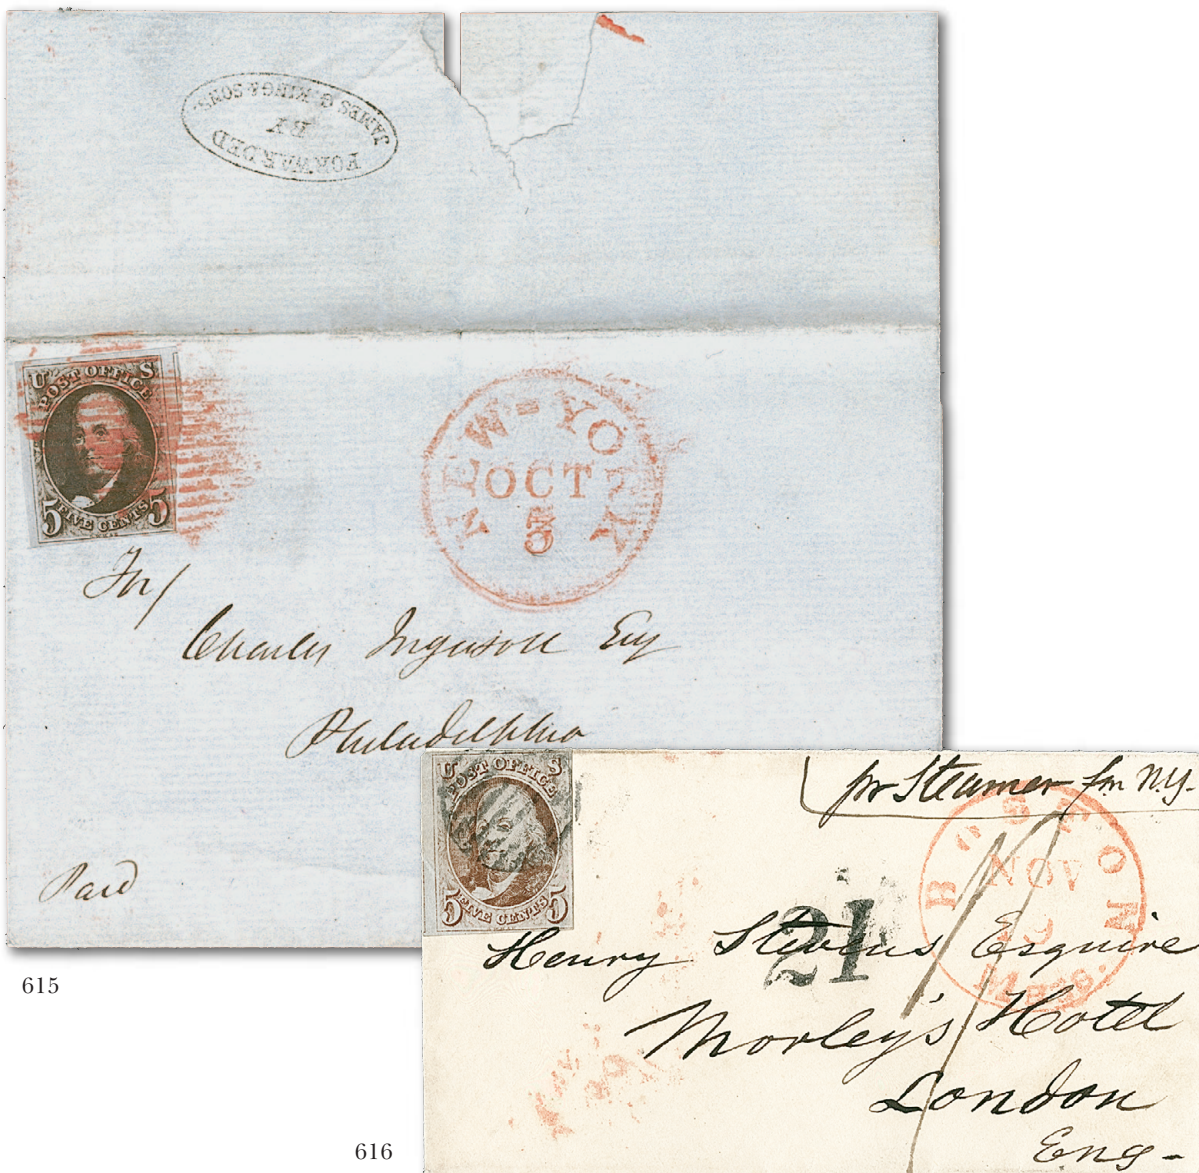 FORWARDED
BY
JAMES G. KING & SONS.
U S
POST OFFICE
5 FIVE CENTS 5
NEW-YORK
OCT
3
For/
Charles Ingersoll Esq
Philadelphia
Paid
615
U S
POST OFFICE
5 FIVE CENTS 5
pr Steamer fm N.Y.
BOSTON
NOV
19
Mass.
21
Henry Stevens Esquire
Morley's Hotel
London
Eng-
616